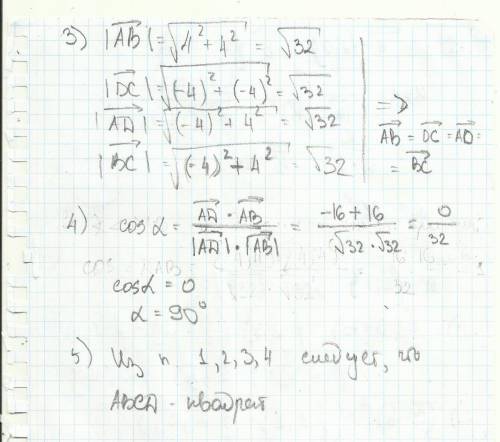 3) |AB| = √4² + 4² = √32
|DC| = √(-4)² + (-4)² = √32
|AD| = √(-4)² + 4² = √32
|BC| = √(-4)² + 4² = √32
=>
AB = DC = AD =
= BC
4) cos α = AD · AB / |AD| · |AB| = -16 + 16 / √32 · √32 = 0 / 32
cos α = 0
α = 90°
5) Из п. 1, 2, 3, 4 следует, что
ABCD - квадрат.